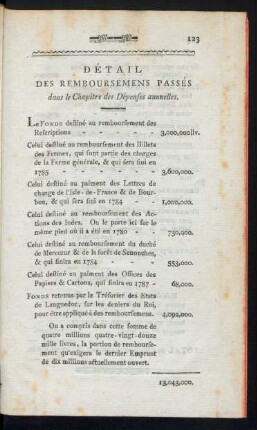 123
DÉTAIL
DES REMBOURSEMENS PASSÉS
dans le Chapitre des Dépenses annuelles.
LE FONDS destiné au remboursement des
Rescriptions - - - - - 3,000,000 liv.
Celui destiné au remboursement des Billets
des Fermes, qui font partie des charges
de la Ferme générale, & qui sera fini en
1785 - - - - - 3,600,000.
Celui destiné au paiment des Lettres de
change de l'Isle-de-France & de Bour-
bon, & qui sera fini en 1784 - - 1,000,000.
Celui destiné au remboursement des Ac-
tions des Indes. On le porte ici sur le
même pied où il a été en 1780 - - 730,900.
Celui destiné au remboursement du duché
de Mercœur & de la forêt de Senonches,
& qui finira en 1784 - - - 553,000.
Celui destiné au paiment des Offices des
Papiers & Cartons, qui finira en 1787 - 68,000.
FONDS retenus par le Trésorier des Etats
de Languedoc, sur les deniers du Roi,
pour être appliqué à des remboursemens. 4,092,000.
On a compris dans cette somme de
quatre millions quatre-vingt-douze
mille livres, la portion de rembourse-
ment qu'exigera le dernier Emprunt
de dix millions actuellement ouvert.
13,043,000.